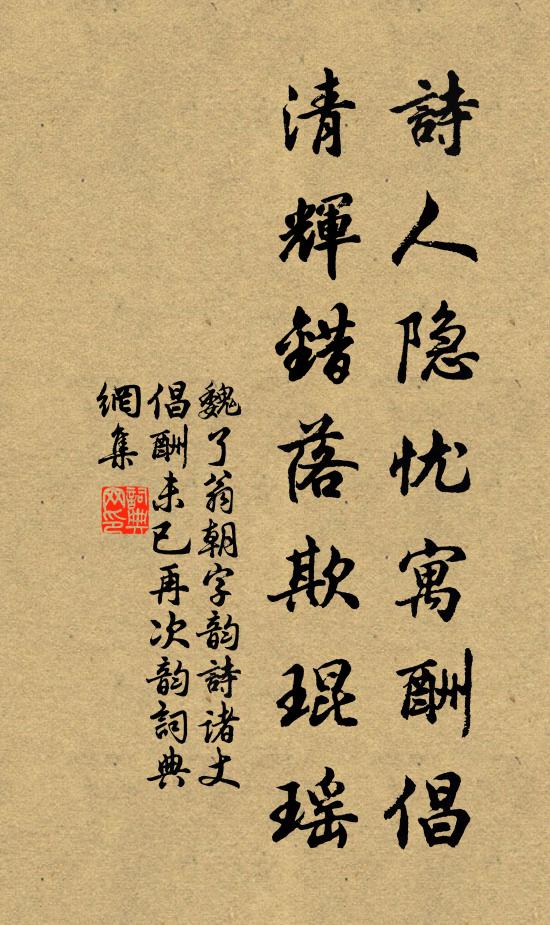 詩人隐忧寓酬倡
清輝錯落欺琨瑶
魏了翁朝字韵詩诸丈
倡酬未已再次韵詞典
網集
詞典
网印